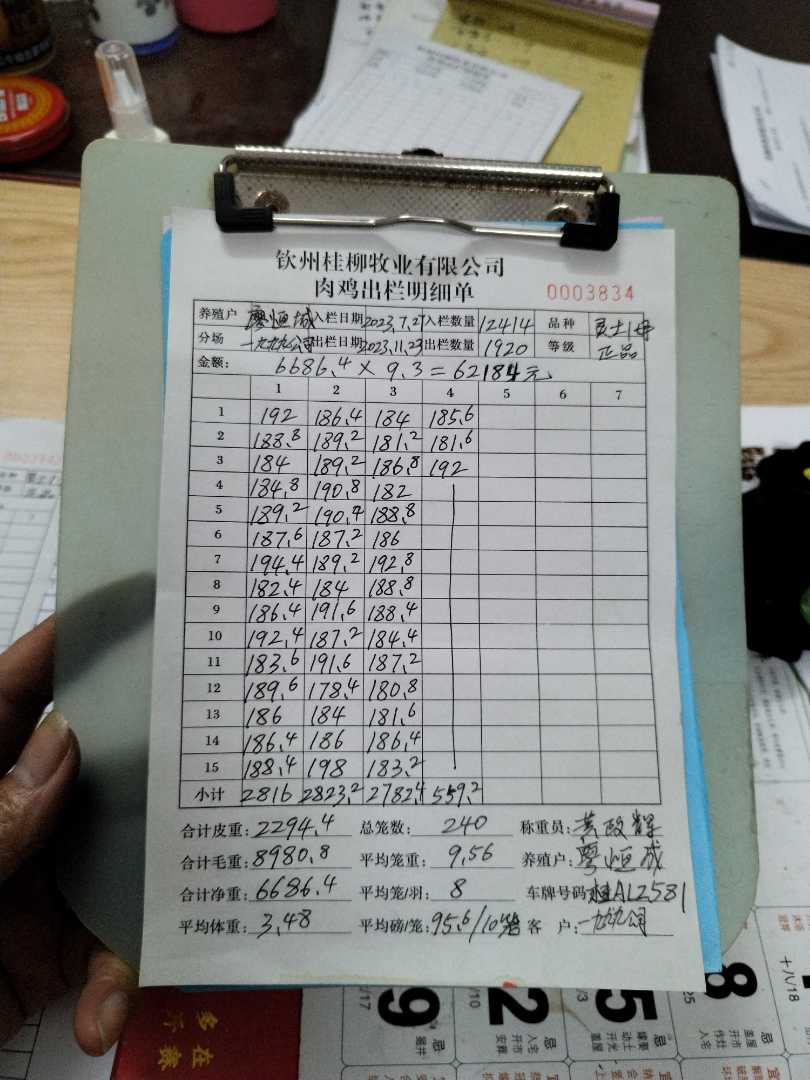 钦州桂柳牧业有限公司
肉鸡出栏明细单 0003834
养殖户 廖恒城 入栏日期 2023.7.27 入栏数量 12414 品种
分场 一九九九公司 出栏日期 2023.11.23 出栏数量 1920 等级 正品
金额: 6686.4 × 9.3 = 62184元
1 2 3 4 5 6 7
1 192 186.4 184 185.6
2 188.8 189.2 181.2 181.6
3 184 189.2 186.8 192
4 184.8 190.8 182
5 189.2 190.4 188.8
6 187.6 187.2 186
7 194.4 189.2 192.8
8 182.4 184 188.8
9 186.4 191.6 188.4
10 192.4 187.2 184.4
11 183.6 191.6 187.2
12 189.6 178.4 180.8
13 186 184 181.6
14 186.4 186 186.4
15 188.4 198 183.2
小计 2816 2823.2 2782.4 559.2
合计皮重: 2294.4 总笼数: 240 称重员: 黄政辉
合计毛重: 8980.8 平均笼重: 9.56 养殖户: 廖恒成
合计净重: 6686.4 平均笼/羽: 8 车牌号码 桂A12581
平均体重: 3.48 平均磅/笼: 95.6/10笼 客 户: 一九九公司
9 2 5 8